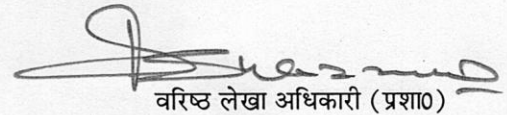 वरिष्ठ लेखा अधिकारी (प्रशा0)